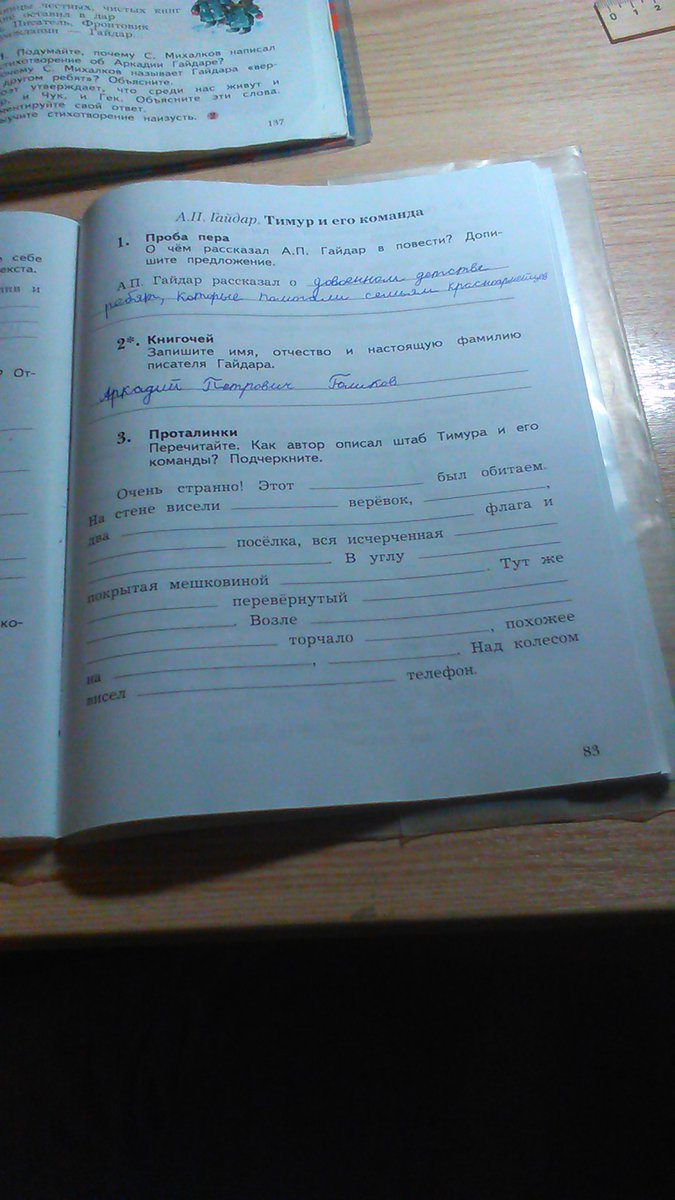 ницы честных, чистых книг
оставил в дар
Писатель, Фронтовик
Гражданин — Гайдар.
Подумайте, почему С. Михалков написал
стихотворение об Аркадии Гайдаре?
очему С. Михалков называет Гайдара «вер-
другом ребят»? Объясните.
оэт утверждает, что среди нас живут и
р, и Чук, и Гек. Объясните эти слова.
ментируйте свой ответ.
ыучите стихотворение наизусть. 2
137
0 1 2
себе
екста.
и
? От-
ко-
А.П. Гайдар. Тимур и его команда
1. Проба пера
О чём рассказал А.П. Гайдар в повести? Допи-
шите предложение.
А.П. Гайдар рассказал о довоенном детстве
ребят, которые помогали семьям красноармейцев
2*. Книгочей
Запишите имя, отчество и настоящую фамилию
писателя Гайдара.
Аркадий Петрович Голиков
3. Проталинки
Перечитайте. Как автор описал штаб Тимура и его
команды? Подчеркните.
Очень странно! Этот ____ был обитаем.
На стене висели ____ верёвок, ____,
два ____ флага и
____ посёлка, вся исчерченная ____
____. В углу ____
покрытая мешковиной ____. Тут же
____ перевёрнутый ____
____. Возле ____
____ торчало ____, похожее
на ____, ____. Над колесом
висел ____ телефон.
83